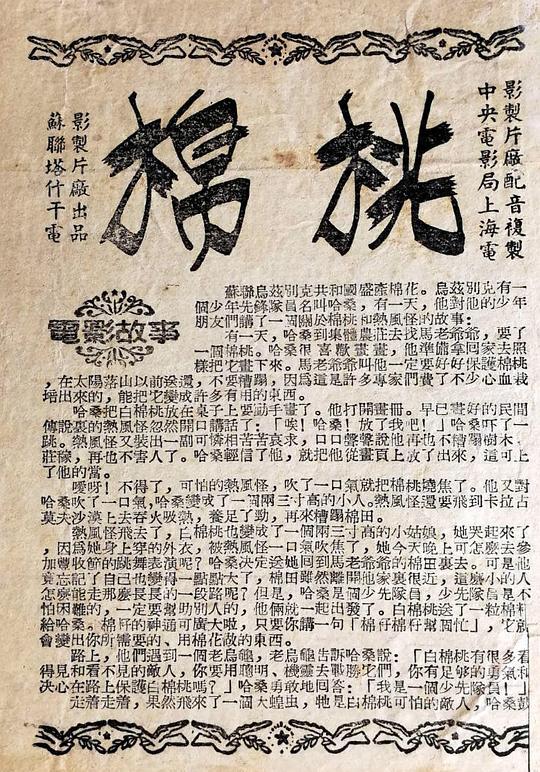 棉桃
中央電影局上海電
影製片廠配音複製
蘇聯塔什干電
影製片廠出品
電影故事
蘇聯烏茲別克共和國盛產棉花。烏茲別克有一
個少年先鋒隊員名叫哈桑,有一天,他對他的少年
朋友們講了一個關於棉桃和熱風怪的故事:
有一天,哈桑到集體農莊去找馬老爺爺,要了
一個棉桃。哈桑很喜歡畫畫,他準備拿回家去照
樣把它畫下來。馬老爺爺叫他一定要好好保護棉桃
,在太陽落山以前送還,不要糟蹋,因爲這是許多專家們費了不少心血栽
培出來的,能把它變成許多有用的東西。
哈桑把白棉桃放在桌子上要動手畫了。他打開畫冊。早已畫好的民間
傳說裏的熱風怪忽然開口講話了:「唉!哈桑!放了我吧!」哈桑吓了一
跳。熱風怪又裝出一副可憐相苦苦哀求,口口聲聲說他再也不糟蹋樹木、
莊稼,再也不害人了。哈桑輕信了他,就把他從畫頁上放了出來,這可上
了他的當。
噯呀!不得了,可怕的熱風怪,吹了一口氣就把棉桃燒焦了。他又對
哈桑吹了一口氣,哈桑變成了一個兩三寸高的小人。熱風怪還要飛到卡拉古
莫夫沙漠上去吞火吸熱,養足了勁,再來糟蹋棉田。
熱風怪飛去了,白棉桃也變成了一個兩三寸高的小姑娘,她哭起來了
,因爲她身上穿的外衣,被熱風怪一口氣吹焦了,她今天晚上可怎麼去參
加豐收節的跳舞表演呢?哈桑決定送她回到馬老爺爺的棉田裏去。可是他
竟忘記了自己也變得一點點大了,棉田雖然離開他家裏很近,這麼小的人
怎麼能走那麼長長的一段路呢?但是,哈桑是個少先隊員,少先隊員是不
怕困難的,一定要幫助別人的,他倆就一起出發了。白棉桃送了一粒棉籽
給哈桑。棉籽的神通可廣大啦,只要你講一句「棉仔棉仔幫個忙」,它就
會變出你所需要的、用棉花做的東西。
路上,他們遇到一個老烏龜,老烏龜告訴哈桑說:「白棉桃有很多看
得見和看不見的敵人,你要用聰明、機靈去戰勝它們,你有足夠的勇氣和
決心在路上保護白棉桃嗎?」哈桑勇敢地回答:「我是一個少先隊員!」
走着走着,果然飛來了一個大蝗虫,牠是白棉桃可怕的敵人,哈桑